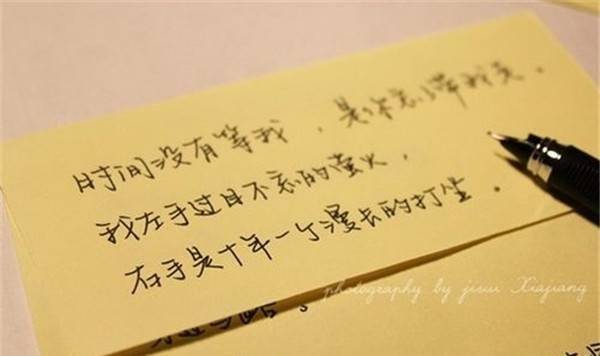 时间没有等我，是你忘了带我走。
我左手过目不忘的萤火，
右手是十年一个漫长的打坐。
photography by Xiajiang